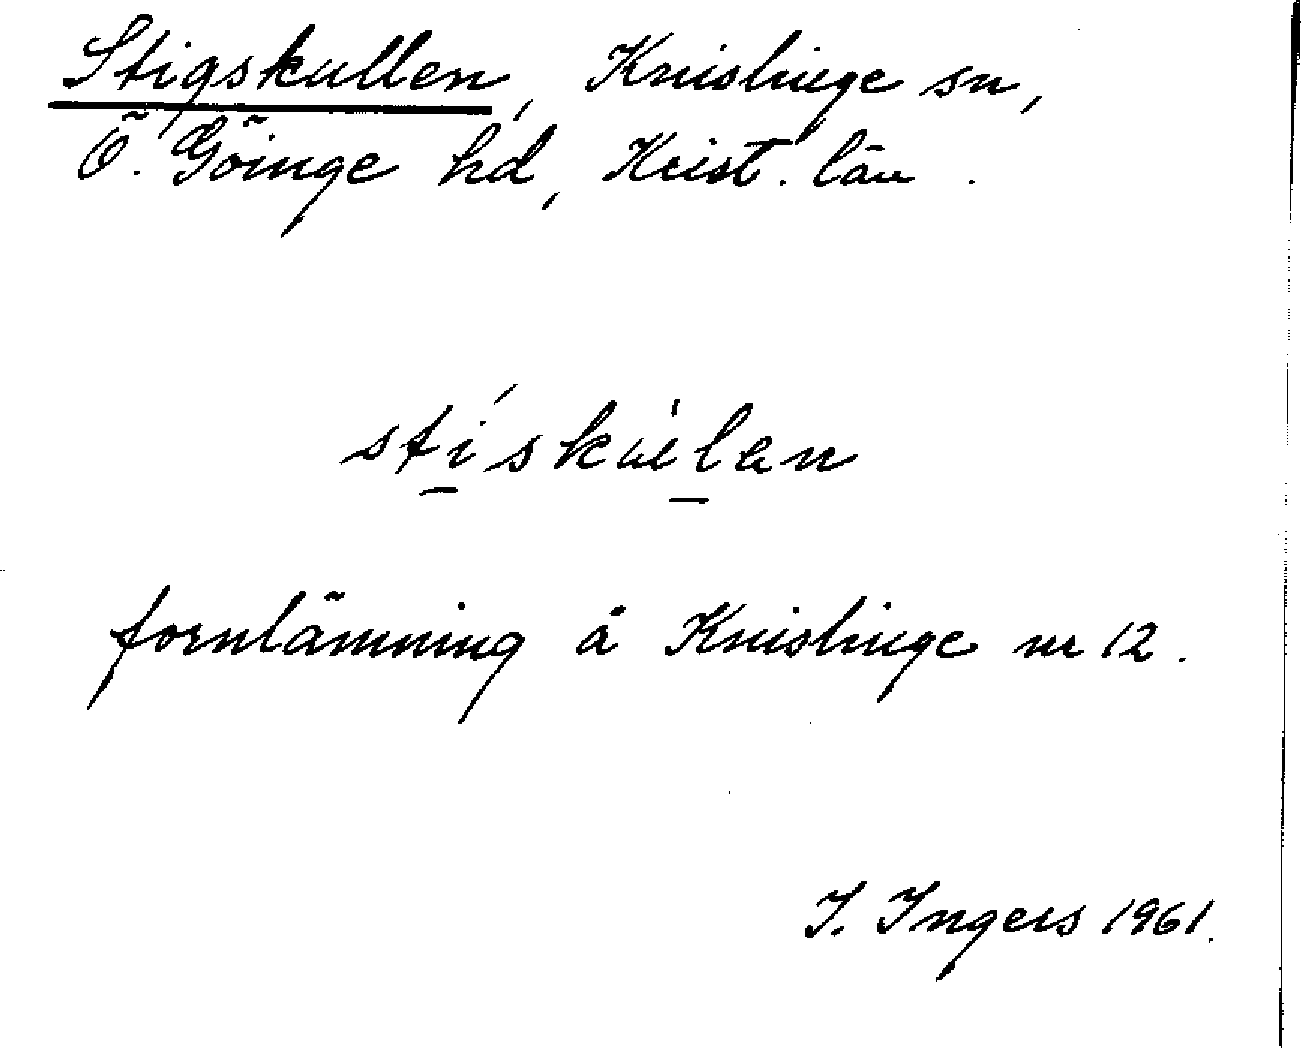 Stigskullen, Knislinge sn,
Ö. Göinge hd, Krist. län.
fornlämning å Knislinge nr 12.
I. Ingers 1961.